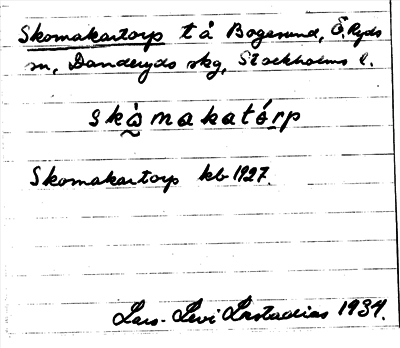 Skomakartorp t å Bogesund, Ö. Ryds
sn, Danderyds skg, Stockholms l.
skò̰makató̱rp
Skomakartorp kb 1927.
Lars-Levi Læstadius 1934.